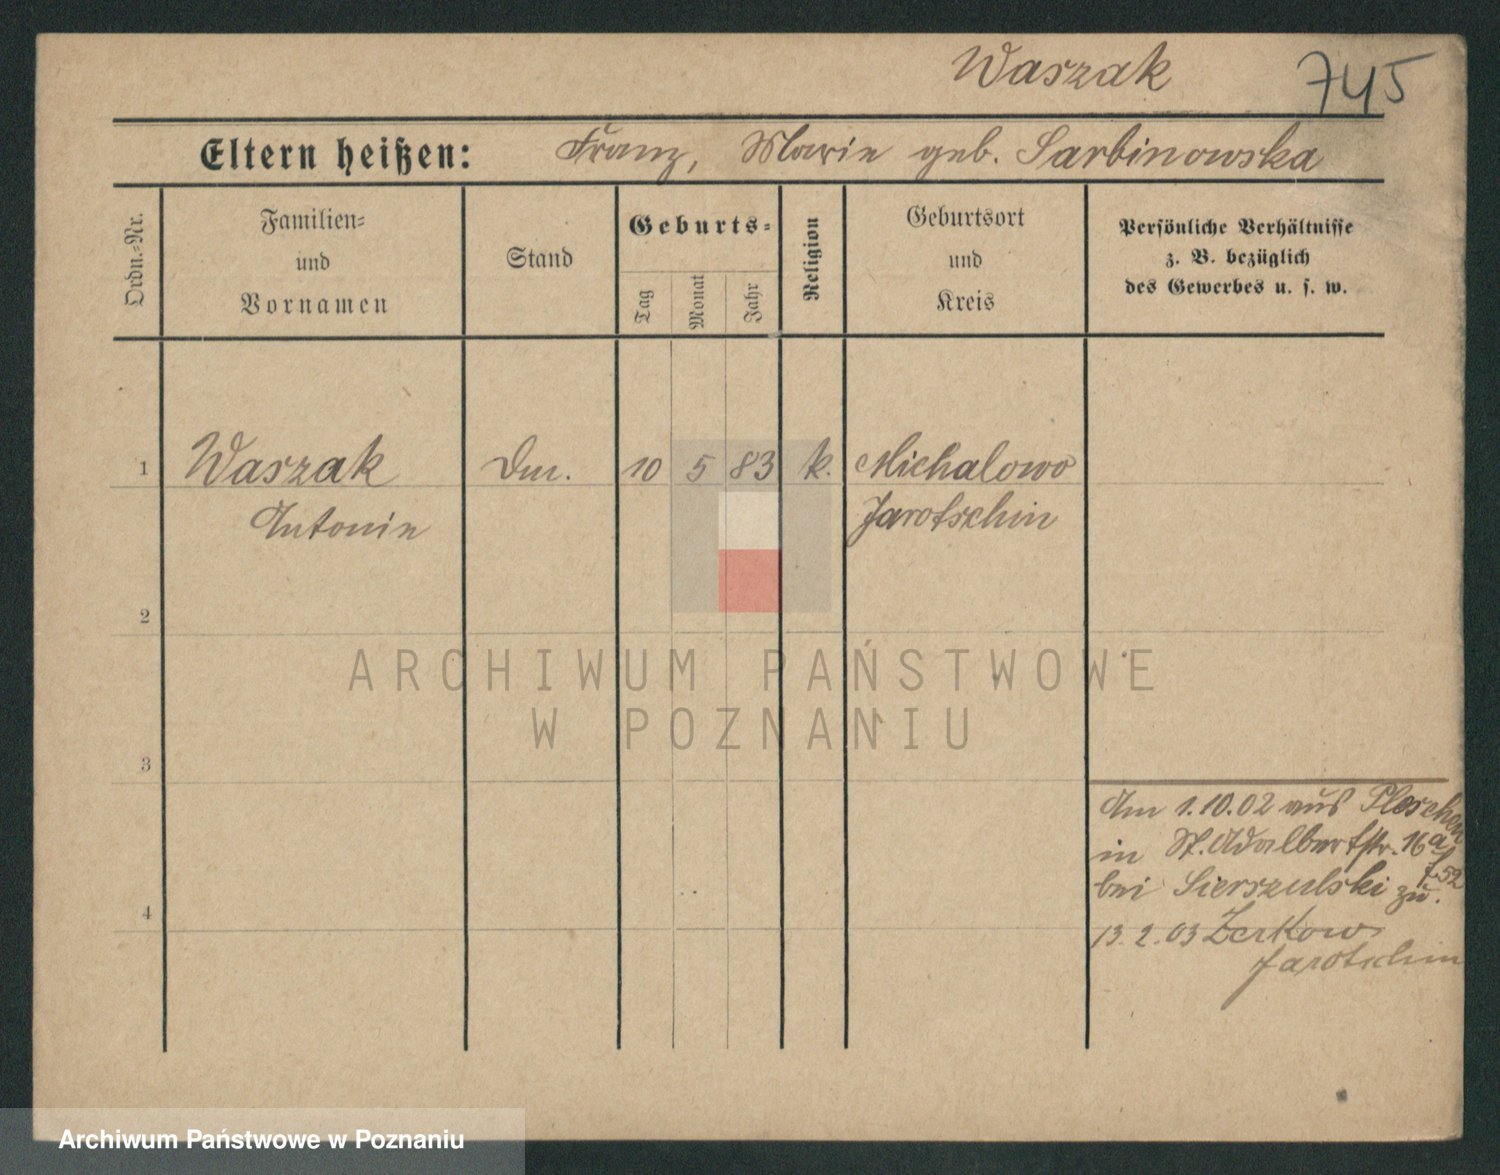 Waszak 745
Eltern heißen: Franz, Marie geb. Sarbinowska
Ordn.-Nr.
Familien-
und
Vornamen
Stand
Geburts-
Tag
Monat
Jahr
Religion
Geburtsort
und
Kreis
Persönliche Verhältnisse
z. B. bezüglich
des Gewerbes u. s. w.
1 Waszak 10 5 83 k. Michalowo
Antonie Jarotschin
2
3
4
Am 1.10.02 aus Pleschen
in St. Adalbertstr. 16a
bei Sierszulski zu.
13.2.03 Zerkow
Jarotschin
ARCHIWUM PAŃSTWOWE
W POZNANIU
Archiwum Państwowe w Poznaniu